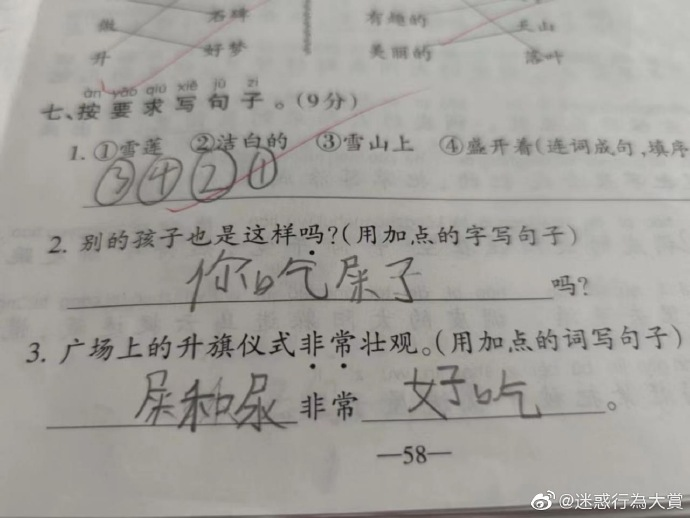 做 名牌 有趣的 玉山
升 好梦 美丽的 落叶
àn yāo qiú xiě jù zi
七、按要求写句子。(9分)
1. ①雪莲 ②洁白的 ③雪山上 ④盛开着(连词成句,填序
③④②①
2. 别的孩子也是这样吗?(用加点的字写句子)
你吃屎了吗?
3. 广场上的升旗仪式非常壮观。(用加点的词写句子)
屎和尿非常好吃。
—58—
@迷惑行為大賞